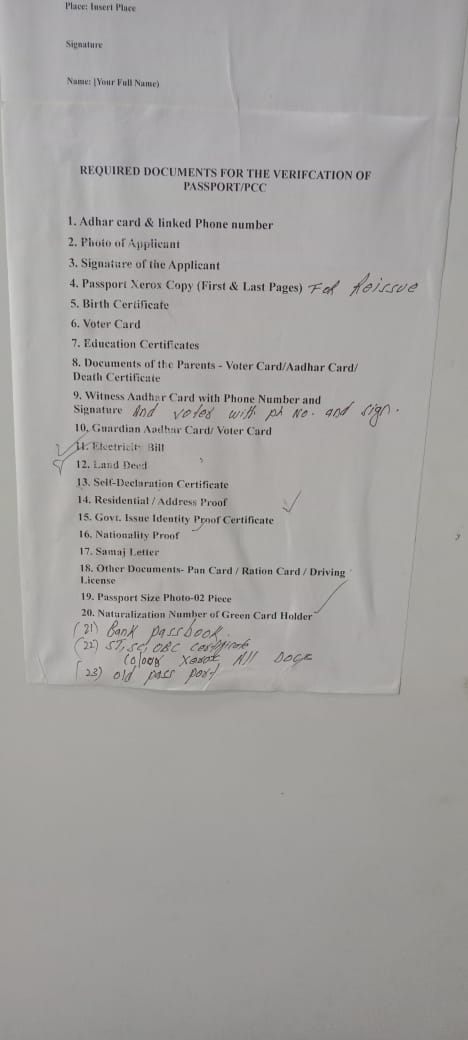 Place: Insert Place
Signature
Name: [Your Full Name)
REQUIRED DOCUMENTS FOR THE VERIFCATION OF
PASSPORT/PCC
1. Adhar card & linked Phone number
2. Photo of Applicant
3. Signature of the Applicant
4. Passport Xerox Copy (First & Last Pages) For Reissue
5. Birth Certificate
6. Voter Card
7. Education Certificates
8. Documents of the Parents - Voter Card/Aadhar Card/
Death Certificate
9. Witness Aadhar Card with Phone Number and
Signature And voter with ph No. and sign.
10. Guardian Aadhar Card/ Voter Card
11. Electricity Bill
12. Land Deed
13. Self-Declaration Certificate
14. Residential / Address Proof
15. Govt. Issue Identity Proof Certificate
16. Nationality Proof
17. Samaj Letter
18. Other Documents- Pan Card / Ration Card / Driving
License
19. Passport Size Photo-02 Piece
20. Naturalization Number of Green Card Holder
(21) Bank passbook.
(22) ST, SC, OBC certificate
Colour Xerox All Docs
(23) old pass port